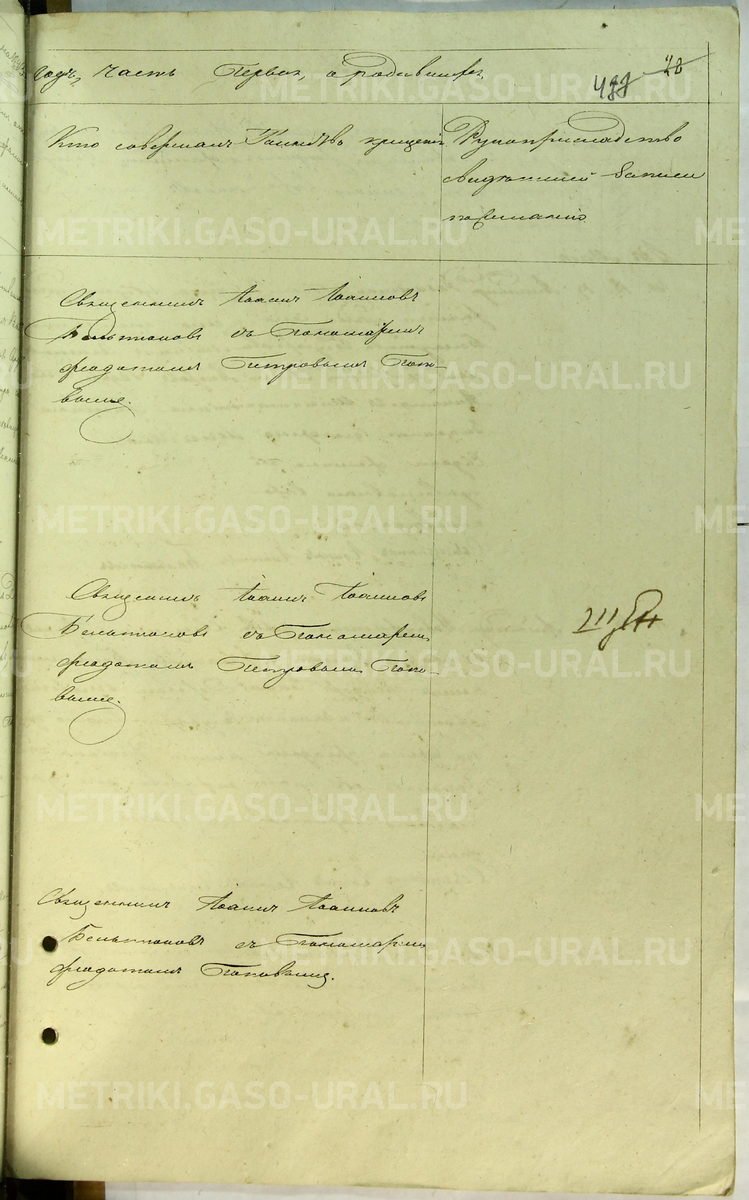 годъ, часть Первая, о родившихся
488 48
Кто совершалъ Таинство крещенія
Рукоприкладство
свидѣтелей записи
по желанію
Священникъ Іоаннъ Іоанновъ
съ Пономаремъ
Феодотомъ Петровымъ Попо-
вымъ.
Священникъ Іоаннъ Іоанновъ
съ Пономаремъ
Феодотомъ Петровымъ Попо-
вымъ.
Священникъ Іоаннъ Іоанновъ
съ Пономаремъ
Феодотомъ Поповымъ.
METRIKI.GASO-URAL.RU